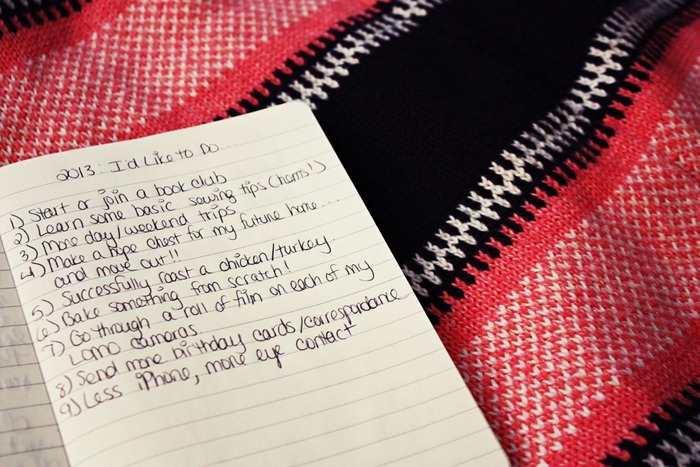 2013: I'd Like to Do...
1) Start or join a book club
2) Learn some basic sewing tips (hems!)
3) More day/weekend trips
4) Make a hope chest for my future home....
and move out!!
5) Successfully roast a chicken/turkey
6) Bake something from scratch!
7) Go through a roll of film on each of my
Lomo cameras
8) Send more birthday cards/correspondance
9) Less iPhone, more eye contact